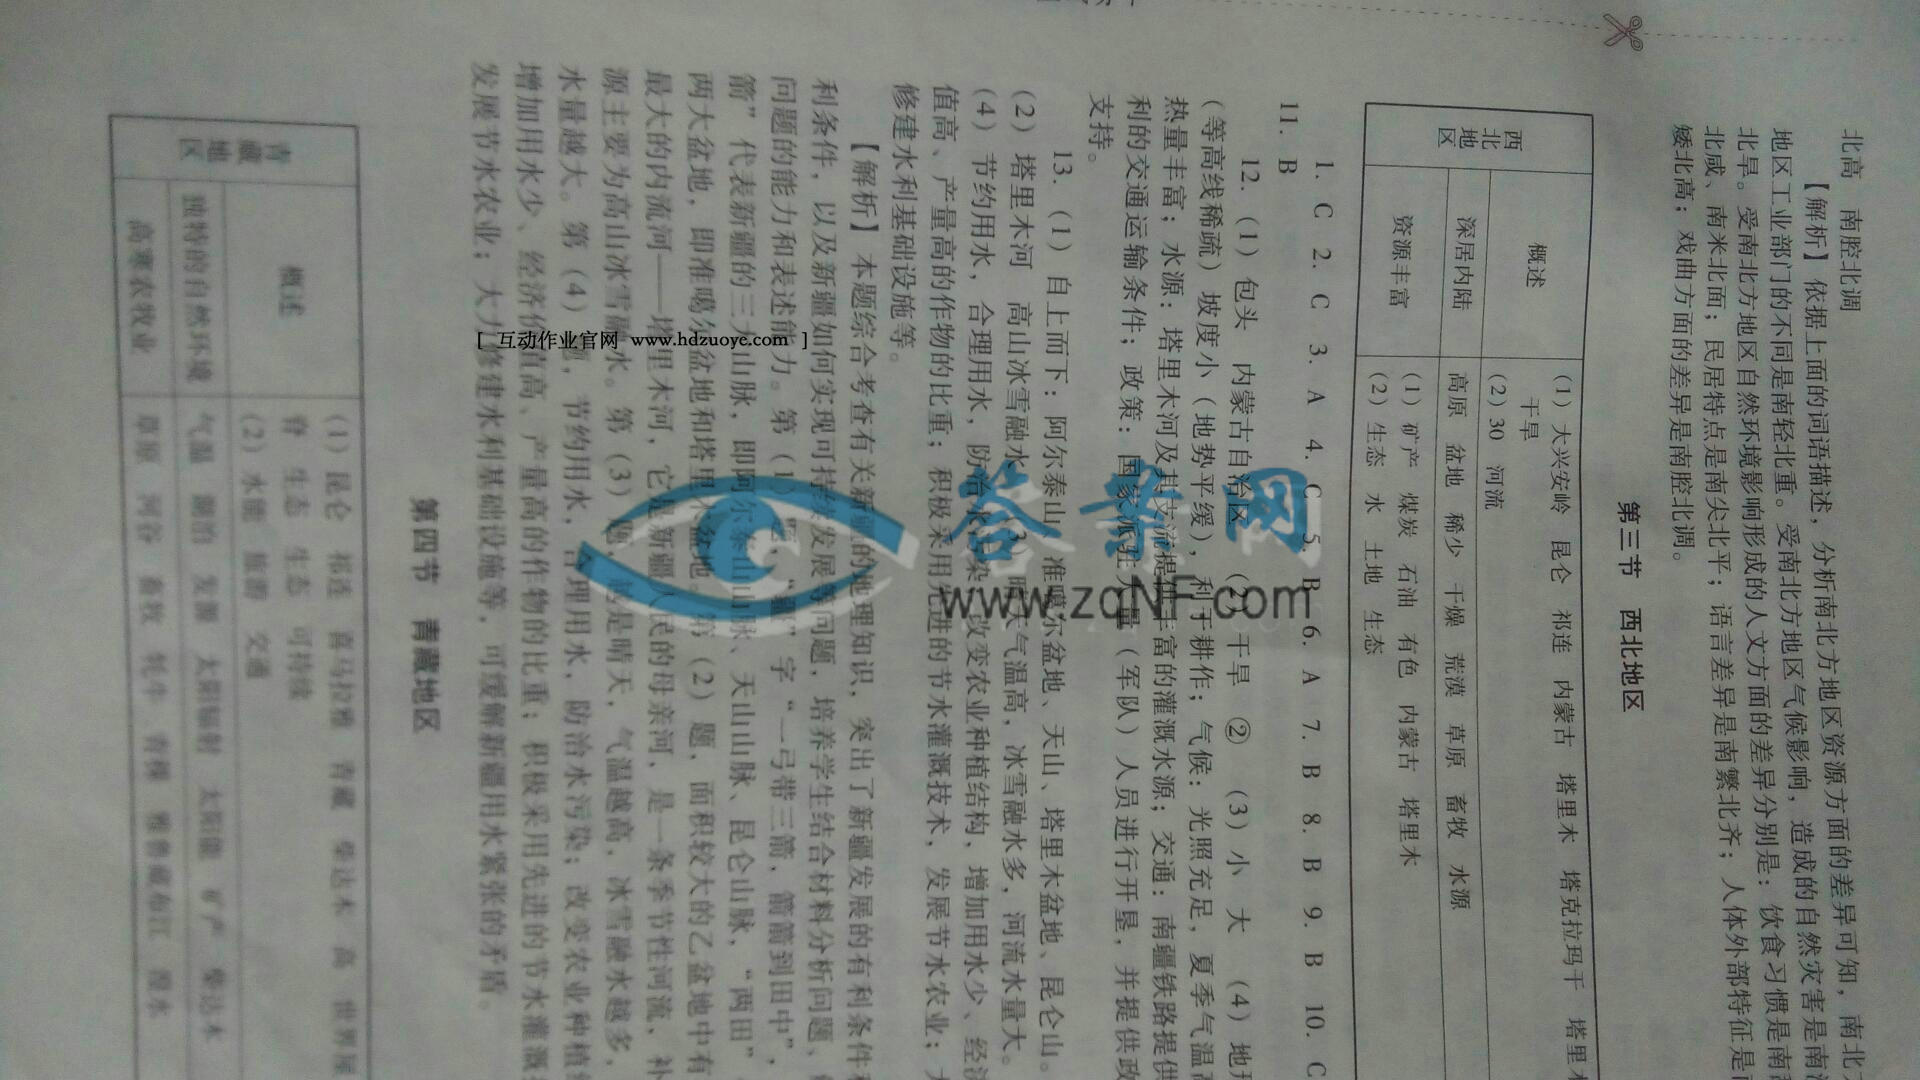 北高 南腔北调
【解析】依据上面的词语描述，分析南北方地区资源方面的差异可知，南北
地区工业部门的不同是南轻北重。受南北方地区气候影响，造成的自然灾害是南
北旱。受南北方地区自然环境影响形成的人文方面的差异分别是：饮食习惯是南
北咸、南米北面；民居特点是南尖北平；语言差异是南繁北齐；人体外部特征是
矮北高；戏曲方面的差异是南腔北调。
第三节 西北地区
西北地区
概述
(1) 大兴安岭 昆仑 祁连 内蒙古 塔里木 塔克拉玛干 塔里木
干旱
(2) 30 河流
深居内陆
高原 盆地 稀少 干燥 荒漠 草原 畜牧 水源
资源丰富
(1) 矿产 煤炭 石油 有色 内蒙古 塔里木
(2) 生态 水 土地 生态
1. C 2. C 3. A 4. C 5. B 6. A 7. B 8. B 9. B 10. C
11. B
12. (1) 包头 内蒙古自治区 (2) 干旱 ② (3) 小 大 (4) 地形
(等高线稀疏) 坡度小 (地势平缓)，利于耕作；气候：光照充足，夏季气温高
热量丰富；水源：塔里木河及其支流提供丰富的灌溉水源；交通：南疆铁路提供
利的交通运输条件；政策：国家派驻大量 (军队) 人员进行开垦，并提供政
支持。
13. (1) 自上而下：阿尔泰山、准噶尔盆地、天山、塔里木盆地、昆仑山。
(2) 塔里木河 高山冰雪融水 (3) 晴天气温高，冰雪融水多，河流水量大。
(4) 节约用水，合理用水，防治水污染；改变农业种植结构，增加用水少、经济
值高、产量高的作物的比重；积极采用先进的节水灌溉技术，发展节水农业；大
修建水利基础设施等。
【解析】本题综合考查有关新疆的地理知识，突出了新疆发展的有利条件和
利条件，以及新疆如何实现可持续发展等问题，培养学生结合材料分析问题、
问题的能力和表述能力。第 (1) 题，“疆”字“一弓带三箭，箭箭到田中”，
箭”代表新疆的三大山脉，即阿尔泰山山脉、天山山脉、昆仑山脉，“两田”
两大盆地，即准噶尔盆地和塔里木盆地。第 (2) 题，面积较大的乙盆地中有
最大的内流河——塔里木河，它是新疆人民的母亲河，是一条季节性河流，补
源主要为高山冰雪融水。第 (3) 题，越是晴天，气温越高，冰雪融水越多，
水量越大。第 (4) 题，节约用水，合理用水，防治水污染；改变农业种植
增加用水少、经济价值高、产量高的作物的比重；积极采用先进的节水灌溉
发展节水农业；大力修建水利基础设施等，可缓解新疆用水紧张的矛盾。
第四节 青藏地区
青藏地区
概述
(1) 昆仑 祁连 喜马拉雅 青藏 柴达木 高 世界屋
脊 生态 生态 可持续
(2) 水能 旅游 交通
独特的自然环境
气温 湖泊 发源 太阳辐射 太阳能 矿产 柴达木
高寒农牧业
草原 河谷 畜牧 牦牛 青稞 雅鲁藏布江 湟水
[ 互动作业官网 www.hdzuoye.com ]
答案网
www.zqNF.com